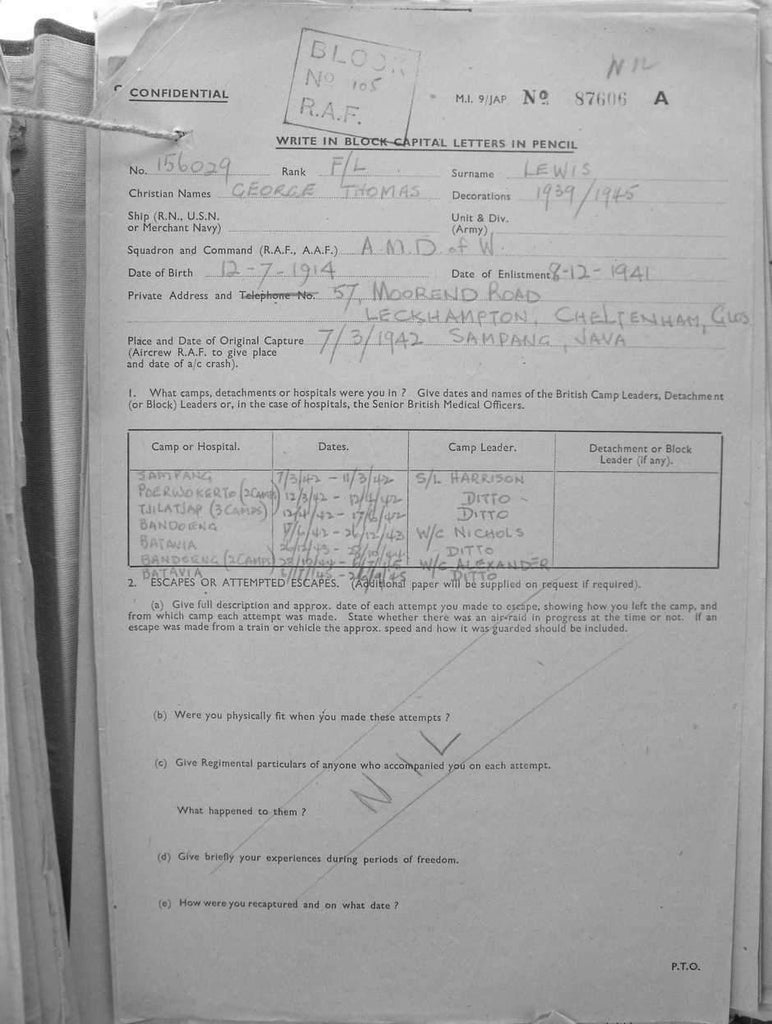 BLOCK
No 105
R.A.F.
NIL
CONFIDENTIAL
M.I. 9/JAP No 87606 A
WRITE IN BLOCK CAPITAL LETTERS IN PENCIL
No. 156029 Rank F/L Surname LEWIS
Christian Names GEORGE THOMAS Decorations 1939/1945
Ship (R.N., U.S.N. or Merchant Navy) Unit & Div. (Army)
Squadron and Command (R.A.F., A.A.F.) A.M.D of W.
Date of Birth 12-7-1914 Date of Enlistment 8-12-1941
Private Address and Telephone No. 57, MOOREND ROAD
LECKHAMPTON, CHELTENHAM, GLOS
Place and Date of Original Capture 7/3/1942 SAMPANG, JAVA
(Aircrew R.A.F. to give place
and date of a/c crash).
1. What camps, detachments or hospitals were you in ? Give dates and names of the British Camp Leaders, Detachment
(or Block) Leaders or, in the case of hospitals, the Senior British Medical Officers.
Camp or Hospital. Dates. Camp Leader. Detachment or Block
Leader (if any).
SAMPANG 7/3/42 - 11/3/42 S/L HARRISON
POERWOKERTO (2 CAMPS) 12/3/42 - DITTO
TJILATJAP (3 CAMPS) DITTO
BANDOENG W/C NICHOLS
BATAVIA DITTO
BANDOENG (2 CAMPS) W/C ALEXANDER
BATAVIA DITTO
2. ESCAPES OR ATTEMPTED ESCAPES. (Additional paper will be supplied on request if required).
(a) Give full description and approx. date of each attempt you made to escape, showing how you left the camp, and
from which camp each attempt was made. State whether there was an air-raid in progress at the time or not. If an
escape was made from a train or vehicle the approx. speed and how it was guarded should be included.
(b) Were you physically fit when you made these attempts ?
(c) Give Regimental particulars of anyone who accompanied you on each attempt.
NIL
What happened to them ?
(d) Give briefly your experiences during periods of freedom.
(e) How were you recaptured and on what date ?
P.T.O.